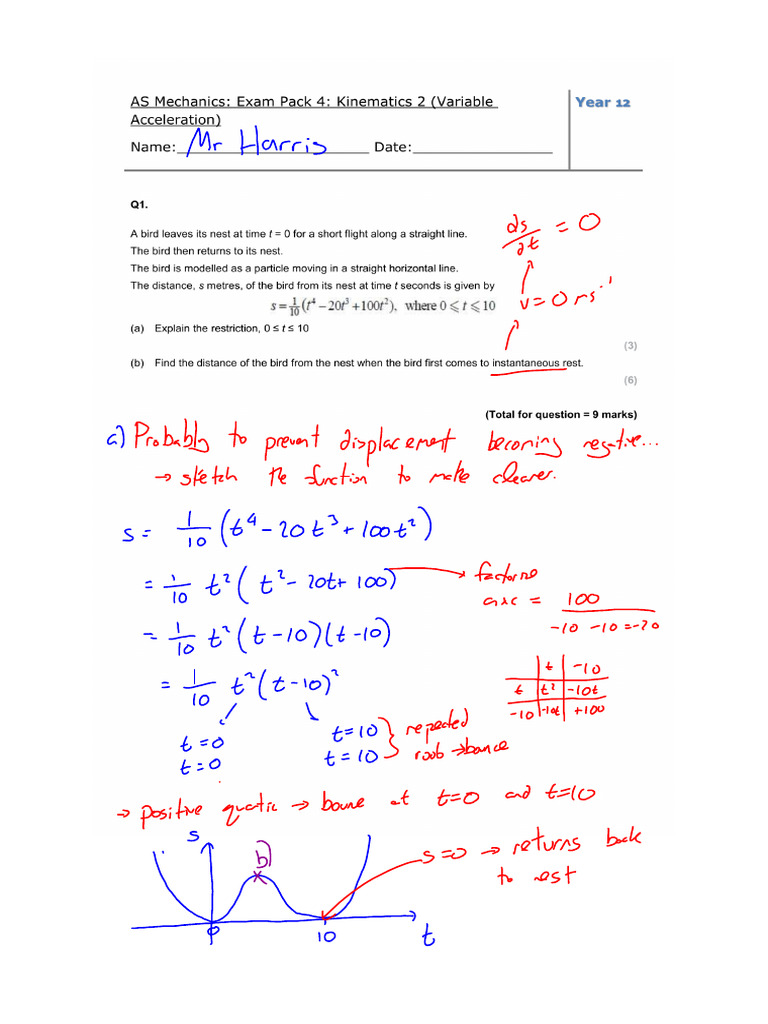 AS Mechanics: Exam Pack 4: Kinematics 2 (Variable
Acceleration)
Year 12
Name: Mr Harris Date:
Q1.
A bird leaves its nest at time t = 0 for a short flight along a straight line.
The bird then returns to its nest.
The bird is modelled as a particle moving in a straight horizontal line.
The distance, s metres, of the bird from its nest at time t seconds is given by
s = 1/10 (t⁴ − 20t³ + 100t²), where 0 ⩽ t ⩽ 10
ds/dt = 0
v = 0 ms⁻¹
(a) Explain the restriction, 0 ≤ t ≤ 10
(3)
(b) Find the distance of the bird from the nest when the bird first comes to instantaneous rest.
(6)
(Total for question = 9 marks)
a) Probably to prevent displacement becoming negative...
→ sketch the function to make clearer.
s = 1/10 (t⁴ − 20t³ + 100t²)
= 1/10 t² (t² − 20t + 100)
→ factorise
axc = 100
−10 −10 = −20
= 1/10 t² (t−10)(t−10)
= 1/10 t² (t−10)²
t −10
t t² −10t
−10 −10t +100
t=0 t=10
t=0 t=10
repeated
→ bounce
→ positive quartic → bounce at t=0 and t=10
s
b)
s=0 → returns back
to nest
0 10 t